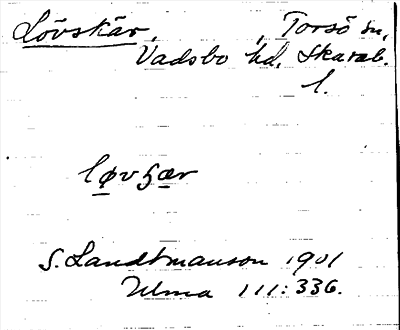 Lövskär, , Torsö sn,
Vadsbo hd, Skarab.
l.
løvʒær
S. Landtmanson 1901
Ulma 111:336.